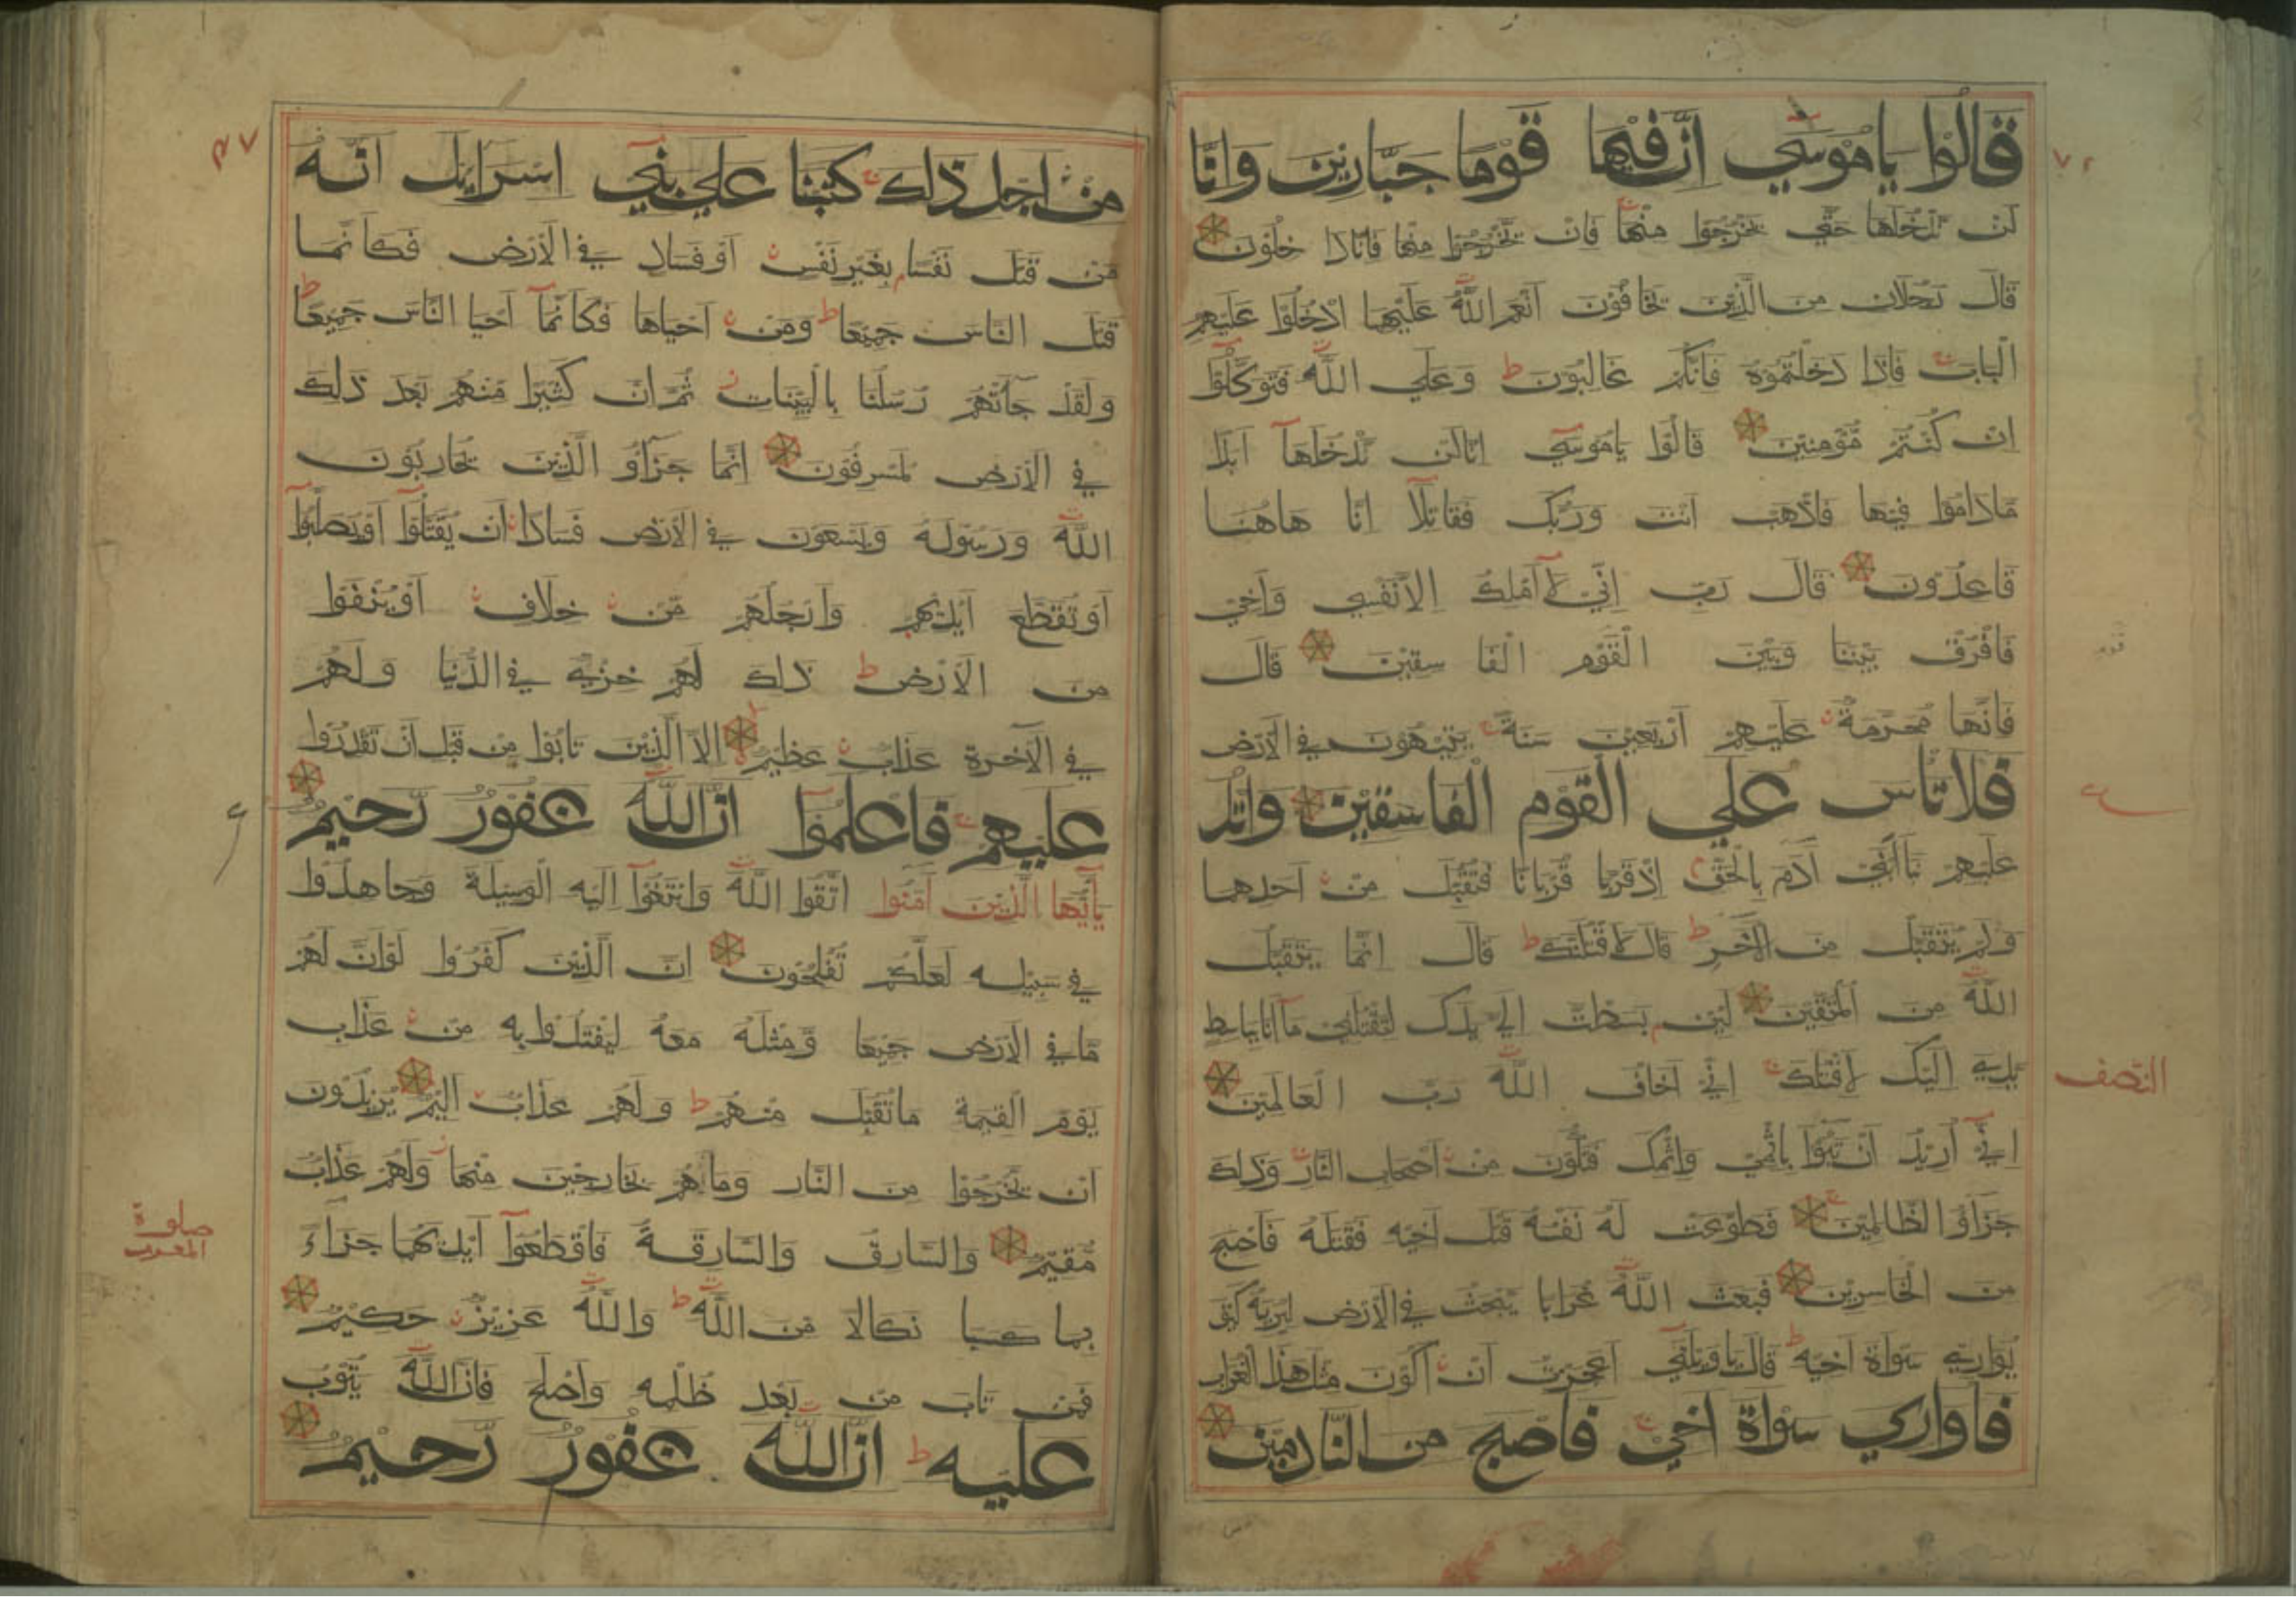 قالوا ياموسي ان فيها قوما جبارين وانا
لن ندخلها حتي يخرجوا منها فان يخرجوا منها فانا دا خلون
قال رجلان من الذين يخافون انعم الله عليهما ادخلوا عليهم
الباب فاذا دخلتموه فانكم غالبون ط وعلي الله فتوكلوا
ان كنتم مؤمنين قالوا ياموسي انا لن ندخلها ابدا
ماداموا فيها فاذهب انت وربك فقاتلا انا هاهنا
قاعدون قال رب اني لا املك الا نفسي واخي
فافرق بيننا وبين القوم الفا سقين قال
فانها محرمة عليهم اربعين سنة يتيهون في الارض
فلا تاس علي القوم الفاسقين واتل
عليهم نبا ابني ادم بالحق اذ قربا قربانا فتقبل من احدهما
ولم يتقبل من الاخر ط قال لاقتلنك ط قال انما يتقبل
الله من المتقين لئن بسطت الي يدك لتقتلني ما انا بباسط
يدي اليك لاقتلك اني اخاف الله رب العالمين
النصف
اني اريد ان تبوا باثمي واثمك فتكون من اصحاب النار وذلك
جزاؤ الظالمين فطوعت له نفسه قتل اخيه فقتله فاصبح
من الخاسرين فبعث الله غرابا يبحث في الارض ليريه كيف
يواري سواة اخيه ط قال ياويلتي اعجزت ان اكون مثل هذا الغراب
فاواري سواة اخي فاصبح من النادمين
من اجل ذلك كتبنا علي بني اسرايل انه
من قتل نفسا بغير نفس او فساد في الارض فكانما
قتل الناس جميعا ط ومن احياها فكانما احيا الناس جميعا ط
ولقد جاتهم رسلنا بالبينات ثم ان كثيرا منهم بعد ذلك
في الارض لمسرفون انما جزاؤ الذين يحاربون
الله ورسوله ويسعون في الارض فسادا ان يقتلوا او يصلبوا
او تقطع ايديهم وارجلهم من خلاف او ينفوا
من الارض ط ذلك لهم خزي في الدنيا ولهم
في الآخرة عذاب عظيم الا الذين تابوا من قبل ان تقدروا
عليهم فاعلموا ان الله غفور رحيم
يأيها الذين امنوا اتقوا الله وابتغوا اليه الوسيلة وجاهدوا
في سبيله لعلكم تفلحون ان الذين كفروا لو ان لهم
ما في الارض جميعا ومثله معه ليفتدوا به من عذاب
يوم القيمة ما تقبل منهم ط ولهم عذاب اليم يريدون
ان يخرجوا من النار وما هم بخارجين منها ولهم عذاب
صلوة
المغرب
مقيم والسارق والسارقة فاقطعوا ايديهما جزاء
بما كسبا نكالا من الله ط والله عزيز حكيم
فمن تاب من بعد ظلمه واصلح فان الله يتوب
عليه ط ان الله غفور رحيم